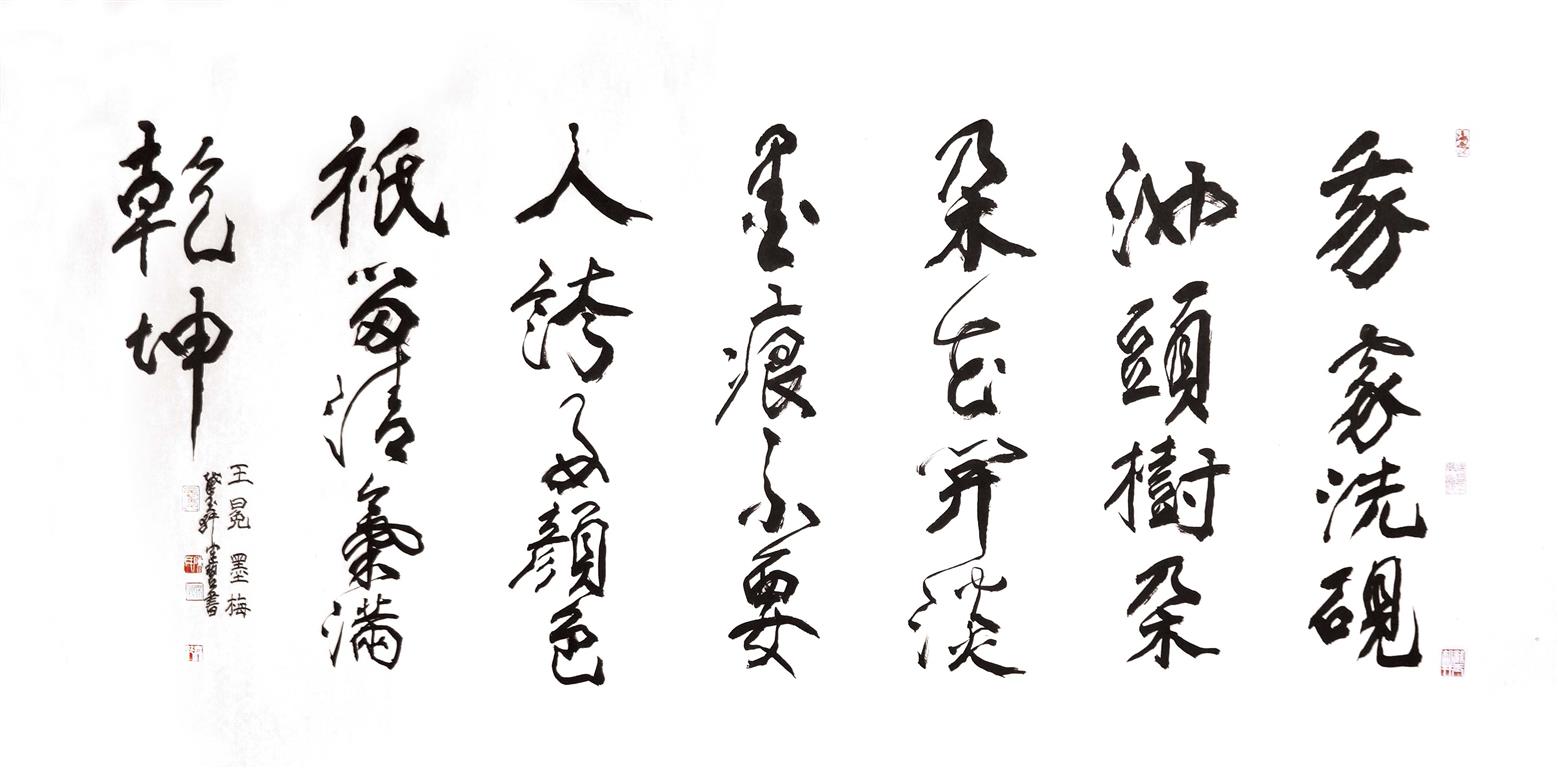 我家洗硯
池頭樹朵
朵花開淡
墨痕不要
人誇好顏色
祇留清氣滿
乾坤
王冕墨梅
書